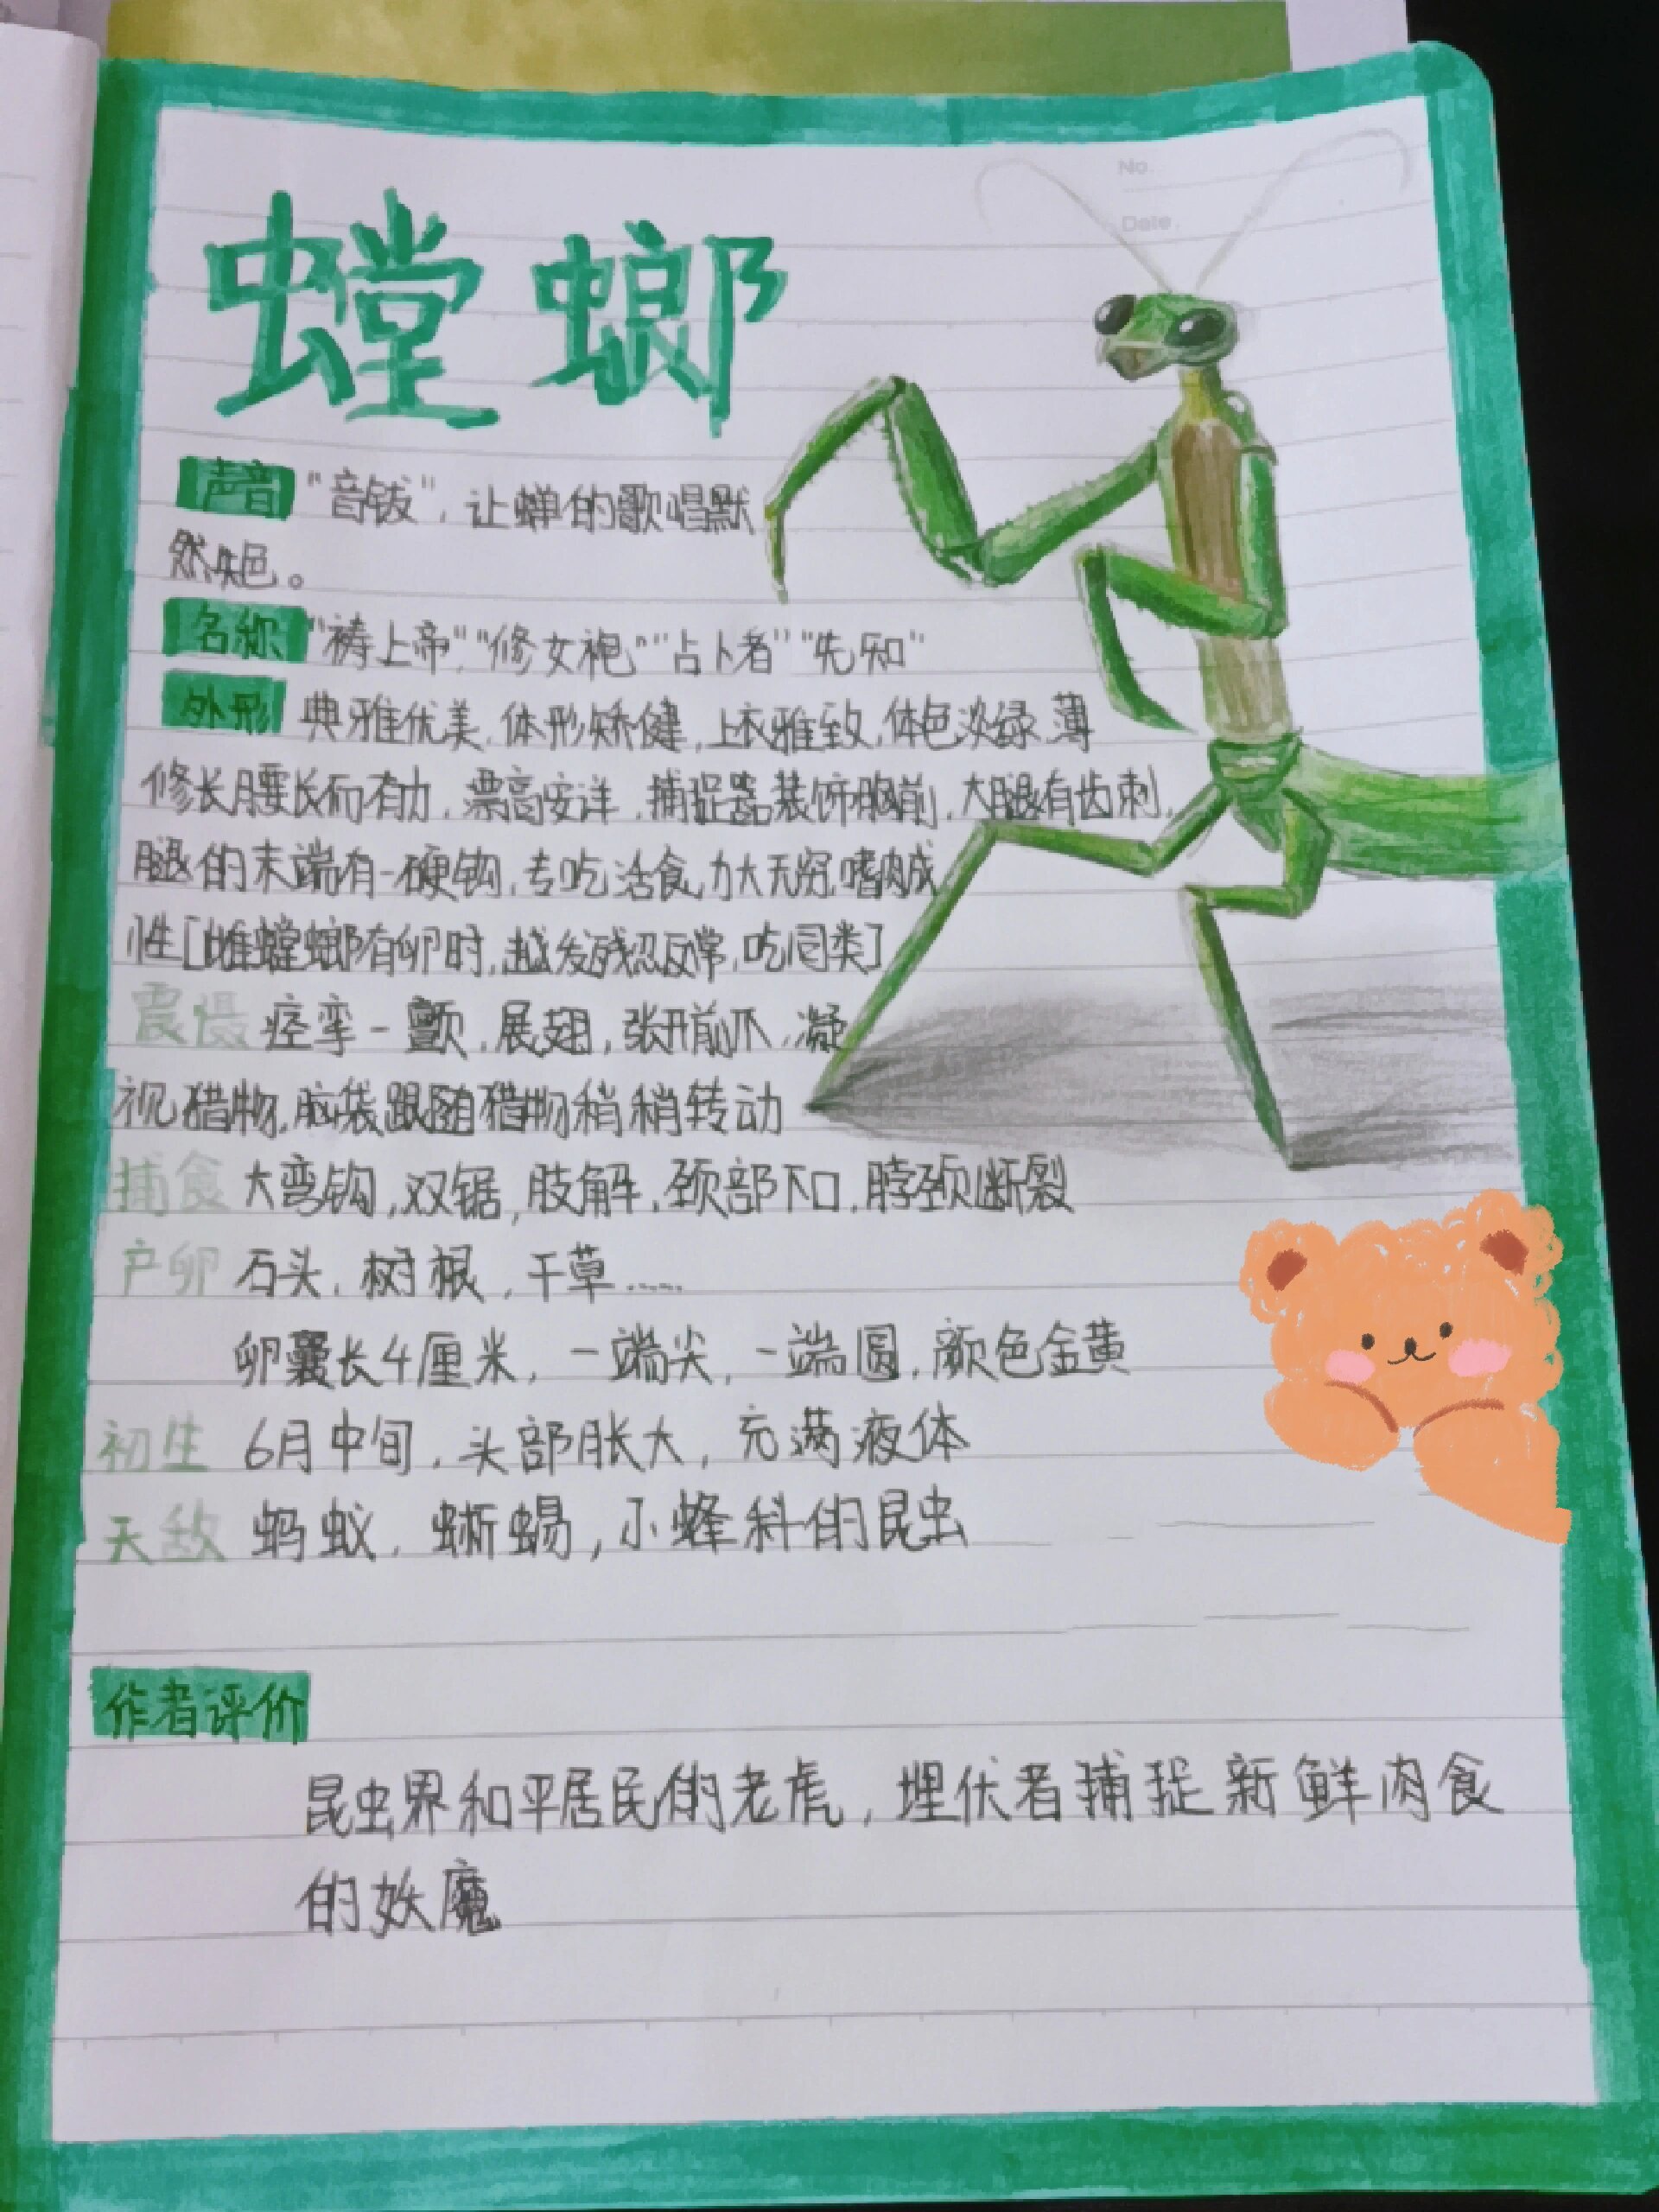 No.
Date.
螳螂
声音 "音钹", 让蝉的歌唱默
然失色。
名称 "祷上帝" "修女袍" "占卜者" "先知"
外形 典雅优美, 体形矫健, 上衣雅致, 体色淡绿, 薄
修长腰长而有力, 漂高安详, 捕捉器装饰胸前, 大腿有齿刺,
腿的末端有一硬钩, 专吃活食, 力大无穷, 嗜肉成
性[雌螳螂有卵时, 越发残忍反常, 吃同类]
震慑 痉挛一颤, 展翅, 张开前爪, 凝
视猎物, 脑袋跟随猎物稍稍转动
捕食 大弯钩, 双锯, 肢解, 颈部下口, 脖颈断裂
产卵 石头, 树根, 干草……
卵囊长4厘米, 一端尖, 一端圆, 颜色金黄
初生 6月中旬, 头部胀大, 充满液体
天敌 蚂蚁, 蜥蜴, 小蜂科的昆虫
作者评价
昆虫界和平居民的老虎, 埋伏者捕捉新鲜肉食
的妖魔